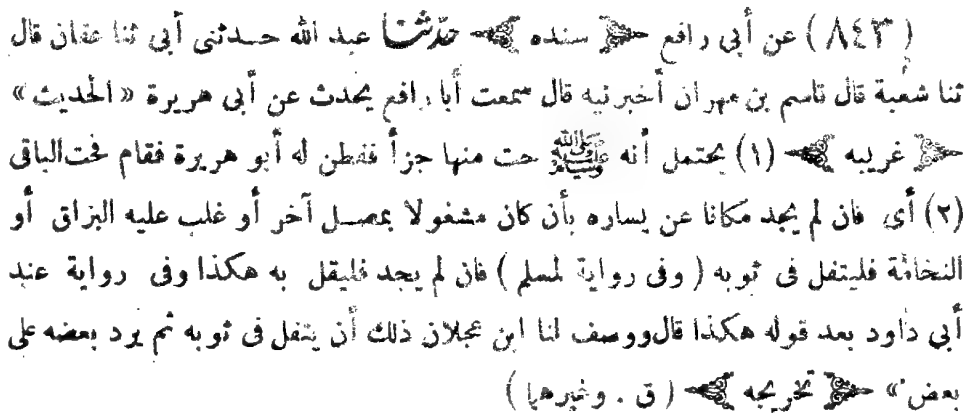 (٨٤٣) عن أبى رافع ﴿ سنده ﴾ حدّثنا عبد الله حدثنى أبى ثنا عفان قال
ثنا شعبة قال قاسم بن مهران أخبرنيه قال سمعت أبا رافع يحدث عن أبى هريرة «الحديث»
﴿ غريبه ﴾ (١) يحتمل أنه ﷺ حت منها جزأ ففطن له أبو هريرة فقام فحت الباقى
(٢) أى فان لم يجد مكانا عن يساره بأن كان مشغولا بمصل آخر أو غلب عليه البزاق أو
النخامة فليتفل فى ثوبه (وفى رواية لمسلم) فان لم يجد فليقل به هكذا وفى رواية عند
أبى داود بعد قوله هكذا قال ووصف لنا ابن عجلان ذلك أن يتفل فى ثوبه ثم يرد بعضه على
بعض» ﴿ تخريجه ﴾ (ق . وغيرهما)